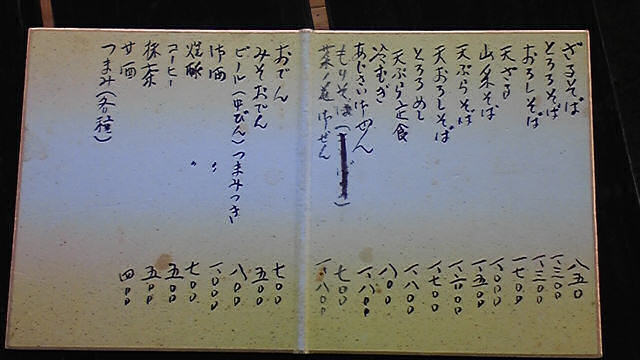 ざるそば 八五〇
とろろそば 一、三〇〇
おろしそば 一、三〇〇
天ざる 一、七〇〇
山菜そば 一、〇〇〇
天ぷらそば 一、五〇〇
天おろしそば 一、六〇〇
とろろめし 一、七〇〇
天ぷら定食 一、八〇〇
冷むぎ 八〇〇
あじさいごぜん 一、八〇〇
もりそば( ) 七〇〇
菜ノ花ごぜん 一、八〇〇
おでん 七〇〇
みそおでん 五〇〇
ビール(中びん)つまみつき 八〇〇
御酒 〃 一、〇〇〇
焼酎 〃 七〇〇
コーヒー 五〇〇
抹茶 五〇〇
甘酒 四〇〇
つまみ(各種)